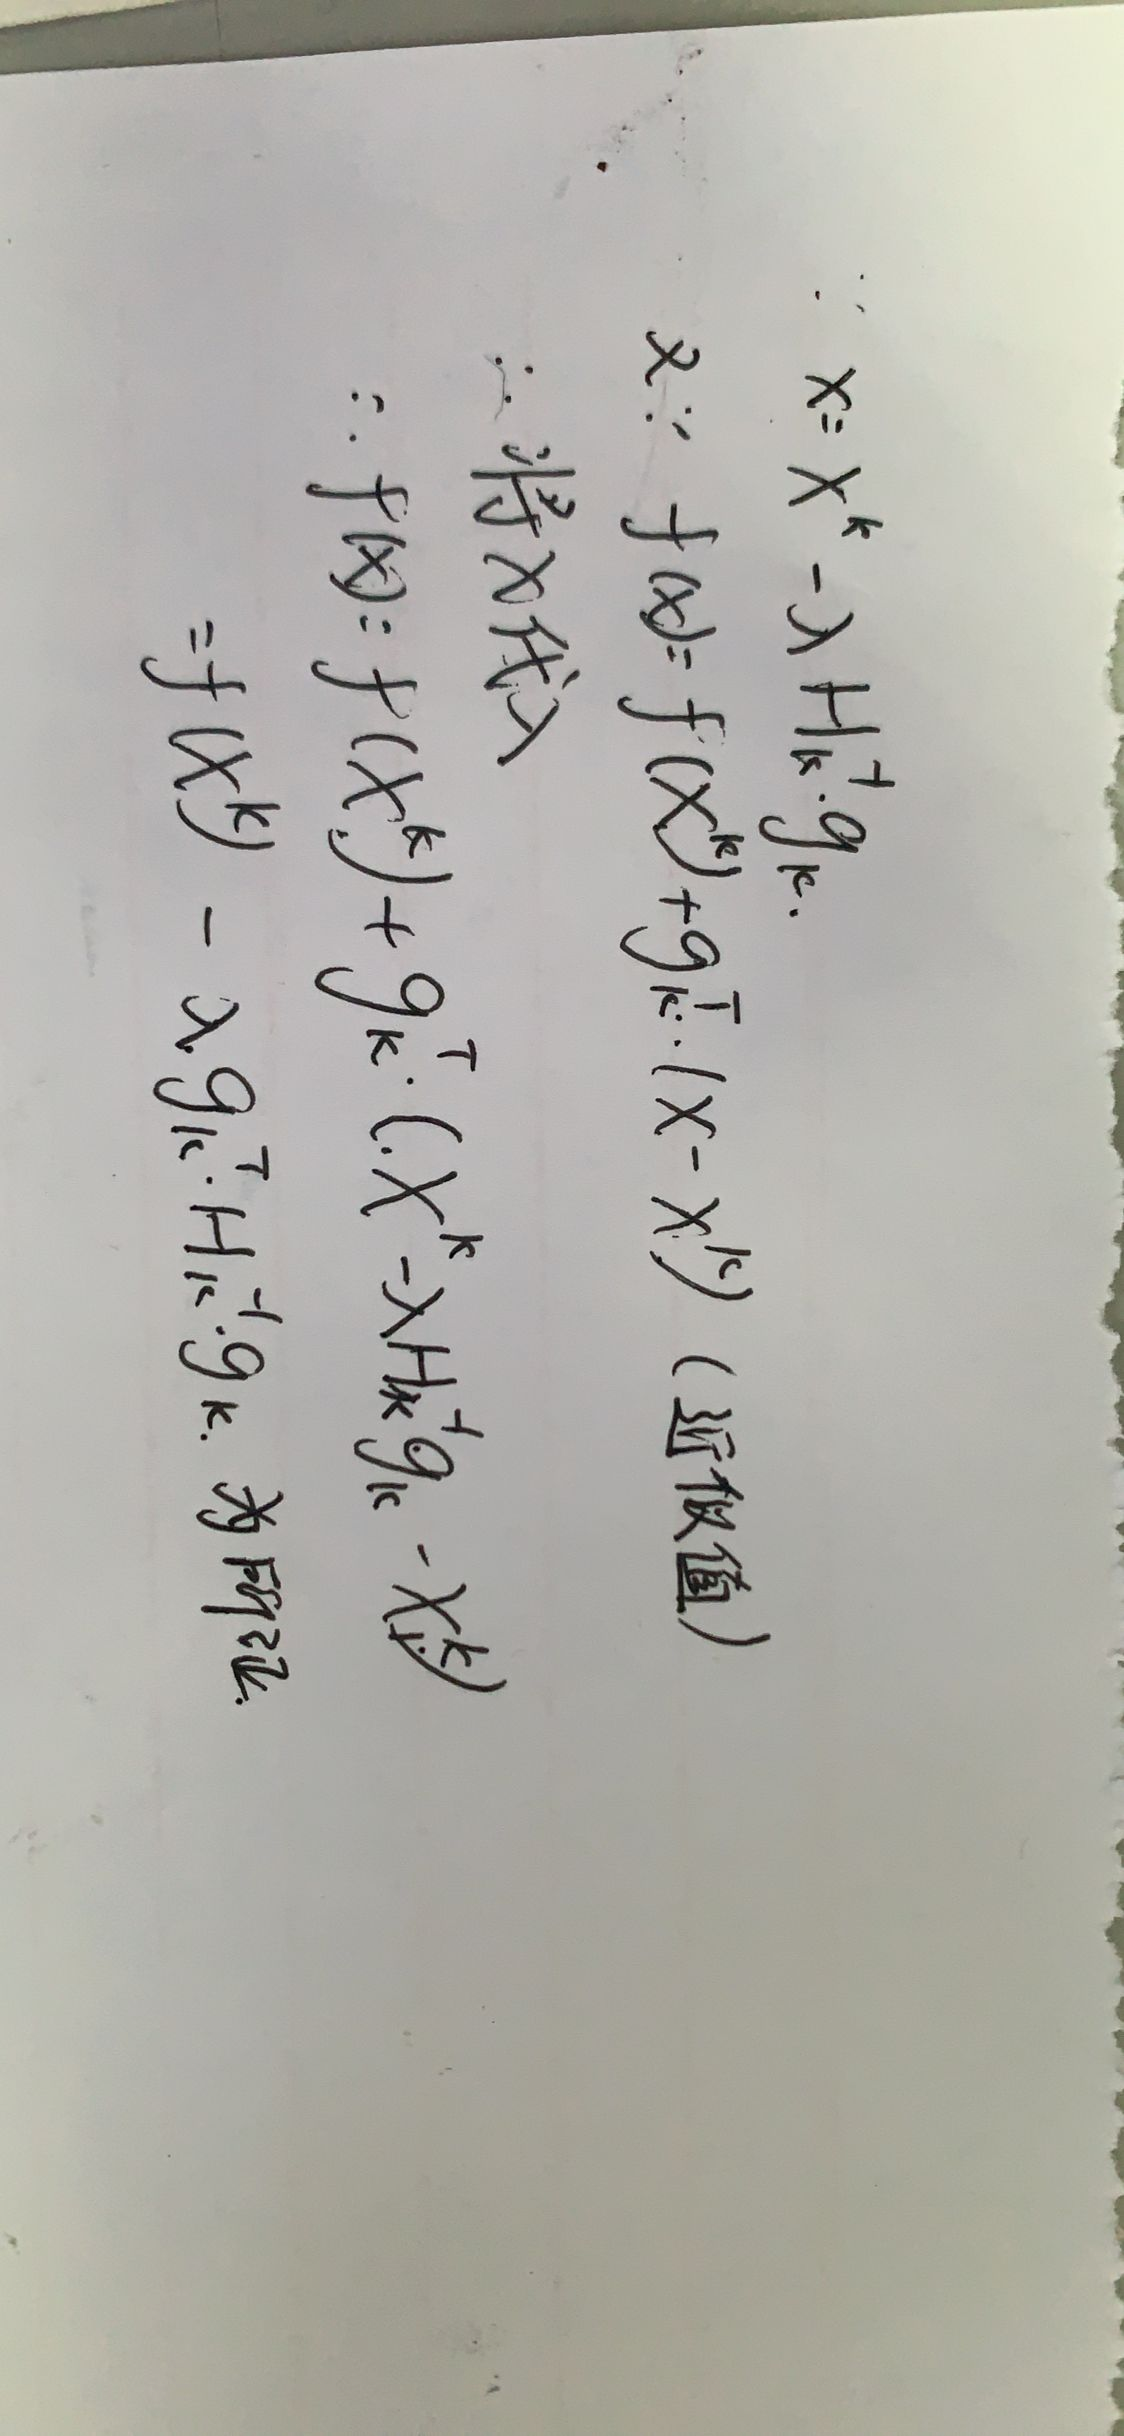 ∵ x = x^k - λ H_k^{-1} · g_k.
又∵ f(x) = f(x^k) + g_k^T · (x - x^k) (近似值)
∴ 将 x 代入
∴ f(x) = f(x^k) + g_k^T · (x^k - λ H_k^{-1} g_k - x^k)
= f(x^k) - λ g_k^T · H_k^{-1} · g_k. 为所证.